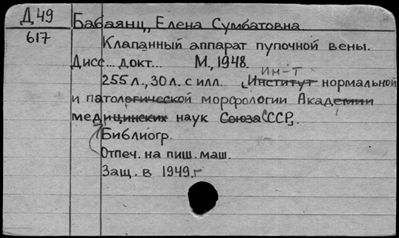 Д 49
617
Бабаянц, Елена Сумбатовна
Клапанный аппарат пупочной вены.
Дисс... докт... М., 1948.
255 л., 30 л. с илл. Ин-т Институт нормальной
и патологической морфологии Академии
медицинских наук Союза СССР.
Библиогр.
Отпеч. на пиш. маш.
Защ. в 1949 г